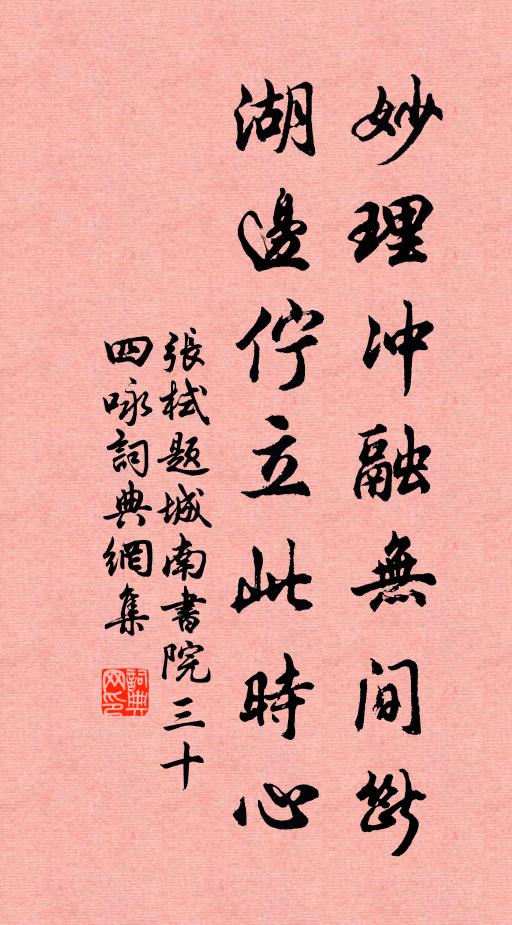 妙理冲融無間斷
湖邊佇立此時心
張栻题城南書院三十
四咏詞典網集
詞典网印